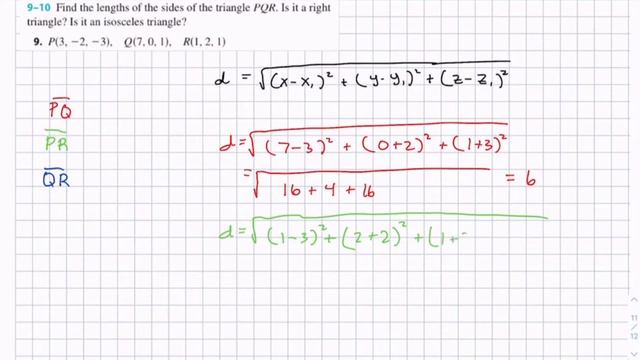 9–10 Find the lengths of the sides of the triangle PQR. Is it a right
triangle? Is it an isosceles triangle?
9. P(3, −2, −3), Q(7, 0, 1), R(1, 2, 1)
d = √((x-x₁)² + (y-y₁)² + (z-z₁)²)
PQ
PR
QR
d = √((7-3)² + (0+2)² + (1+3)²)
= √(16 + 4 + 16) = 6
d = √((1-3)² + (2+2)² + (1+
11
12